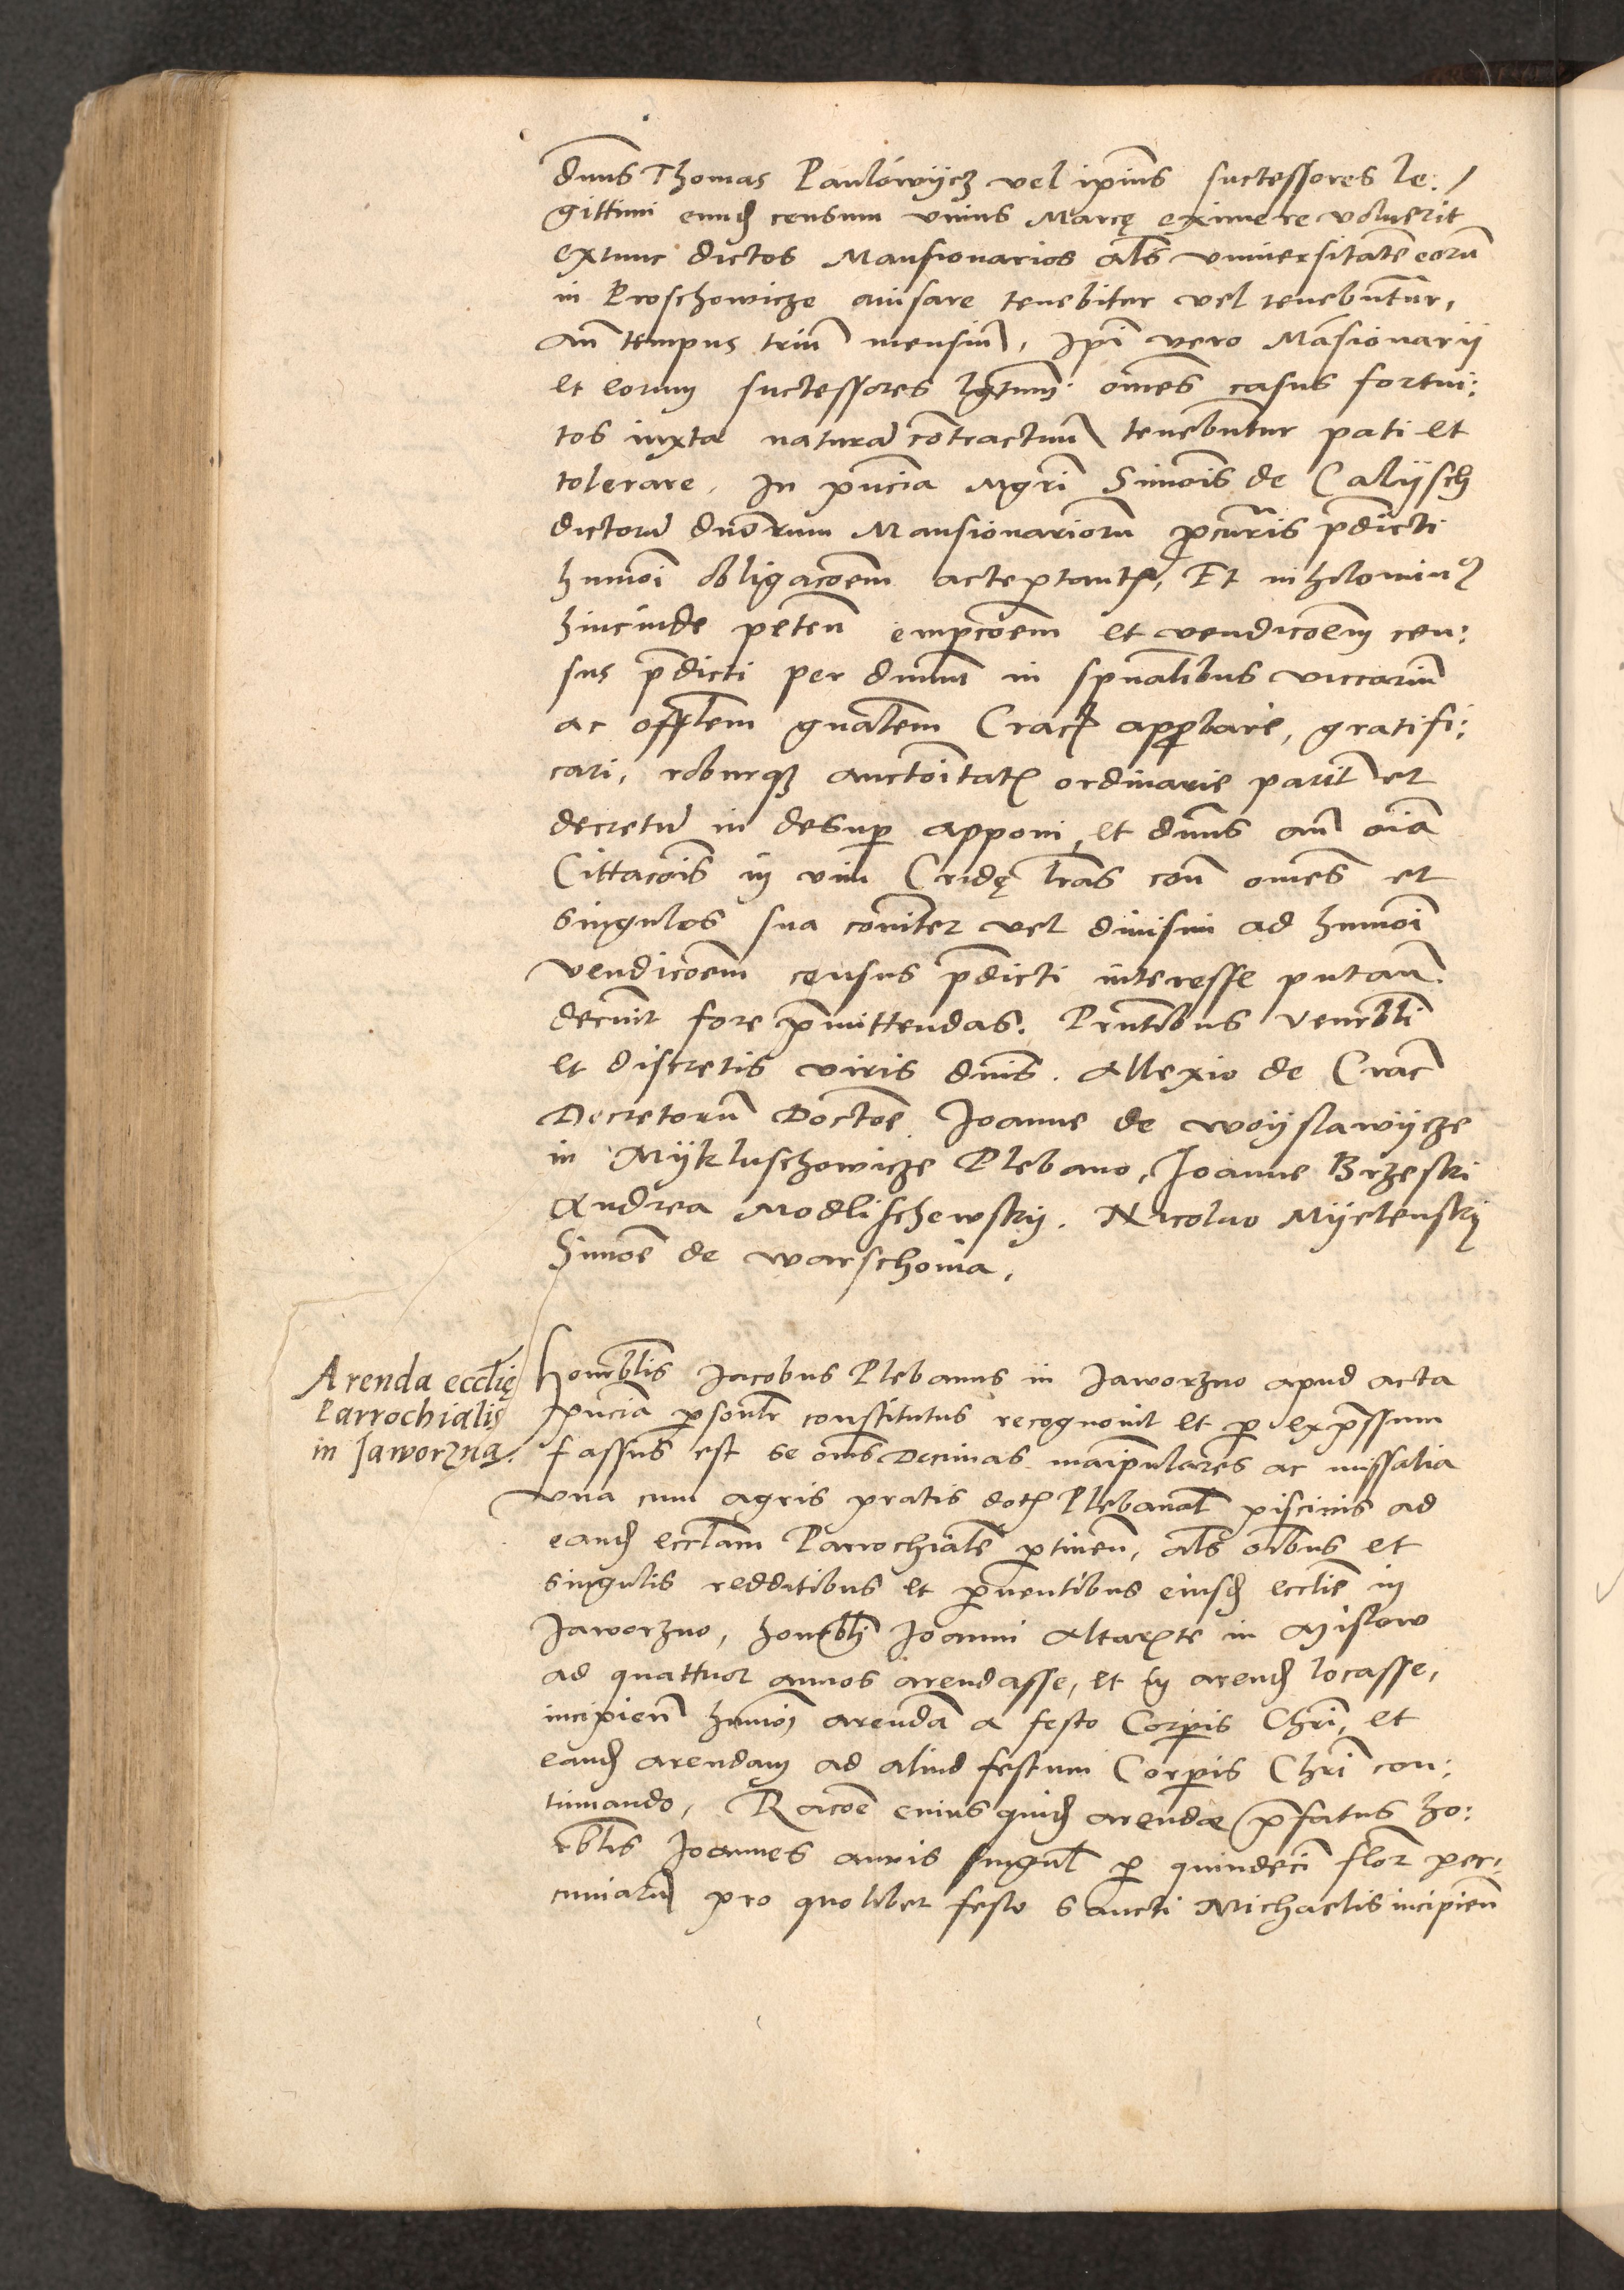 dnus Thomas Paulowÿcz vel ipius successores le:
gittimi eund censum vnius Marcę eximere voluerit
extunc dictos Mansionarios als vniuersitatem eorū
in Proschowicze auisare tenebitur vel tenebuntur,
an tempus triū mensiū, Ipi vero Mansionarij
et eorum successores lgtimi omes casus fortui:
tos iuxta naturā contractuū tenebuntur pati et
tolerare. In pncia Mgri Simois de Calÿsch
dictorū dnorum Mansionariorū procuris pdicti
hmmoi obligacoem acceptantis, Et nihilominus
hincinde peten empcoem et vendicoem cen:
sus pdicti per dnum in spualibus viccariū
ac offlem gnalem Crac approbare, gratifi:
cari, roburq auctoitatis ordinarie parit et
decretū in desup apponi, et dnus an oia
Cittacois in vim Cridę lras con omes et
singulos sua coniter vel diuisim ad hmmoi
vendicoem census pdicti interesse putan
decreuit fore pmittendas. Prntibus venerbli
et discretis viris dnis. Allexio de Crac
Decretorū Doctore Joanne de Woÿslawÿcze
in Mÿkluschowicze Plebano, Joanne Brzeski
Andrea Modlischewskÿ. Nicolao Mÿelenskÿ
Simoe de Warschouia.
Arenda ecclie
Parrochialis
in Jaworzna.
Honorblis Jacobus Plebanus in Jaworzno apud acta
pncia psonlr constitutus recognouit et p expssum
fassus est se oms Decimas maipulares ac missalia
vna cum agris pratis dotis Plebanal piscinis ad
eand ecclam Parrochialē ptinen, als oibus et
singulis redditibus et puentibus eiusd ecclie in
Jaworzno, honorbli Joanni Altariste in Mislow
ad quattuor annos arendasse, et in arend locasse,
incipien hmmoi arendā a festo Corpis Chri, et
eand arendam ad aliud festum Corpis Chri con:
tinuando, Racoe cuius quid arendæ pfatus ho:
rblis Joannes annis singul p quindeci flor pec:
cuniatū pro quolibet festo Sancti Michaelis incipien